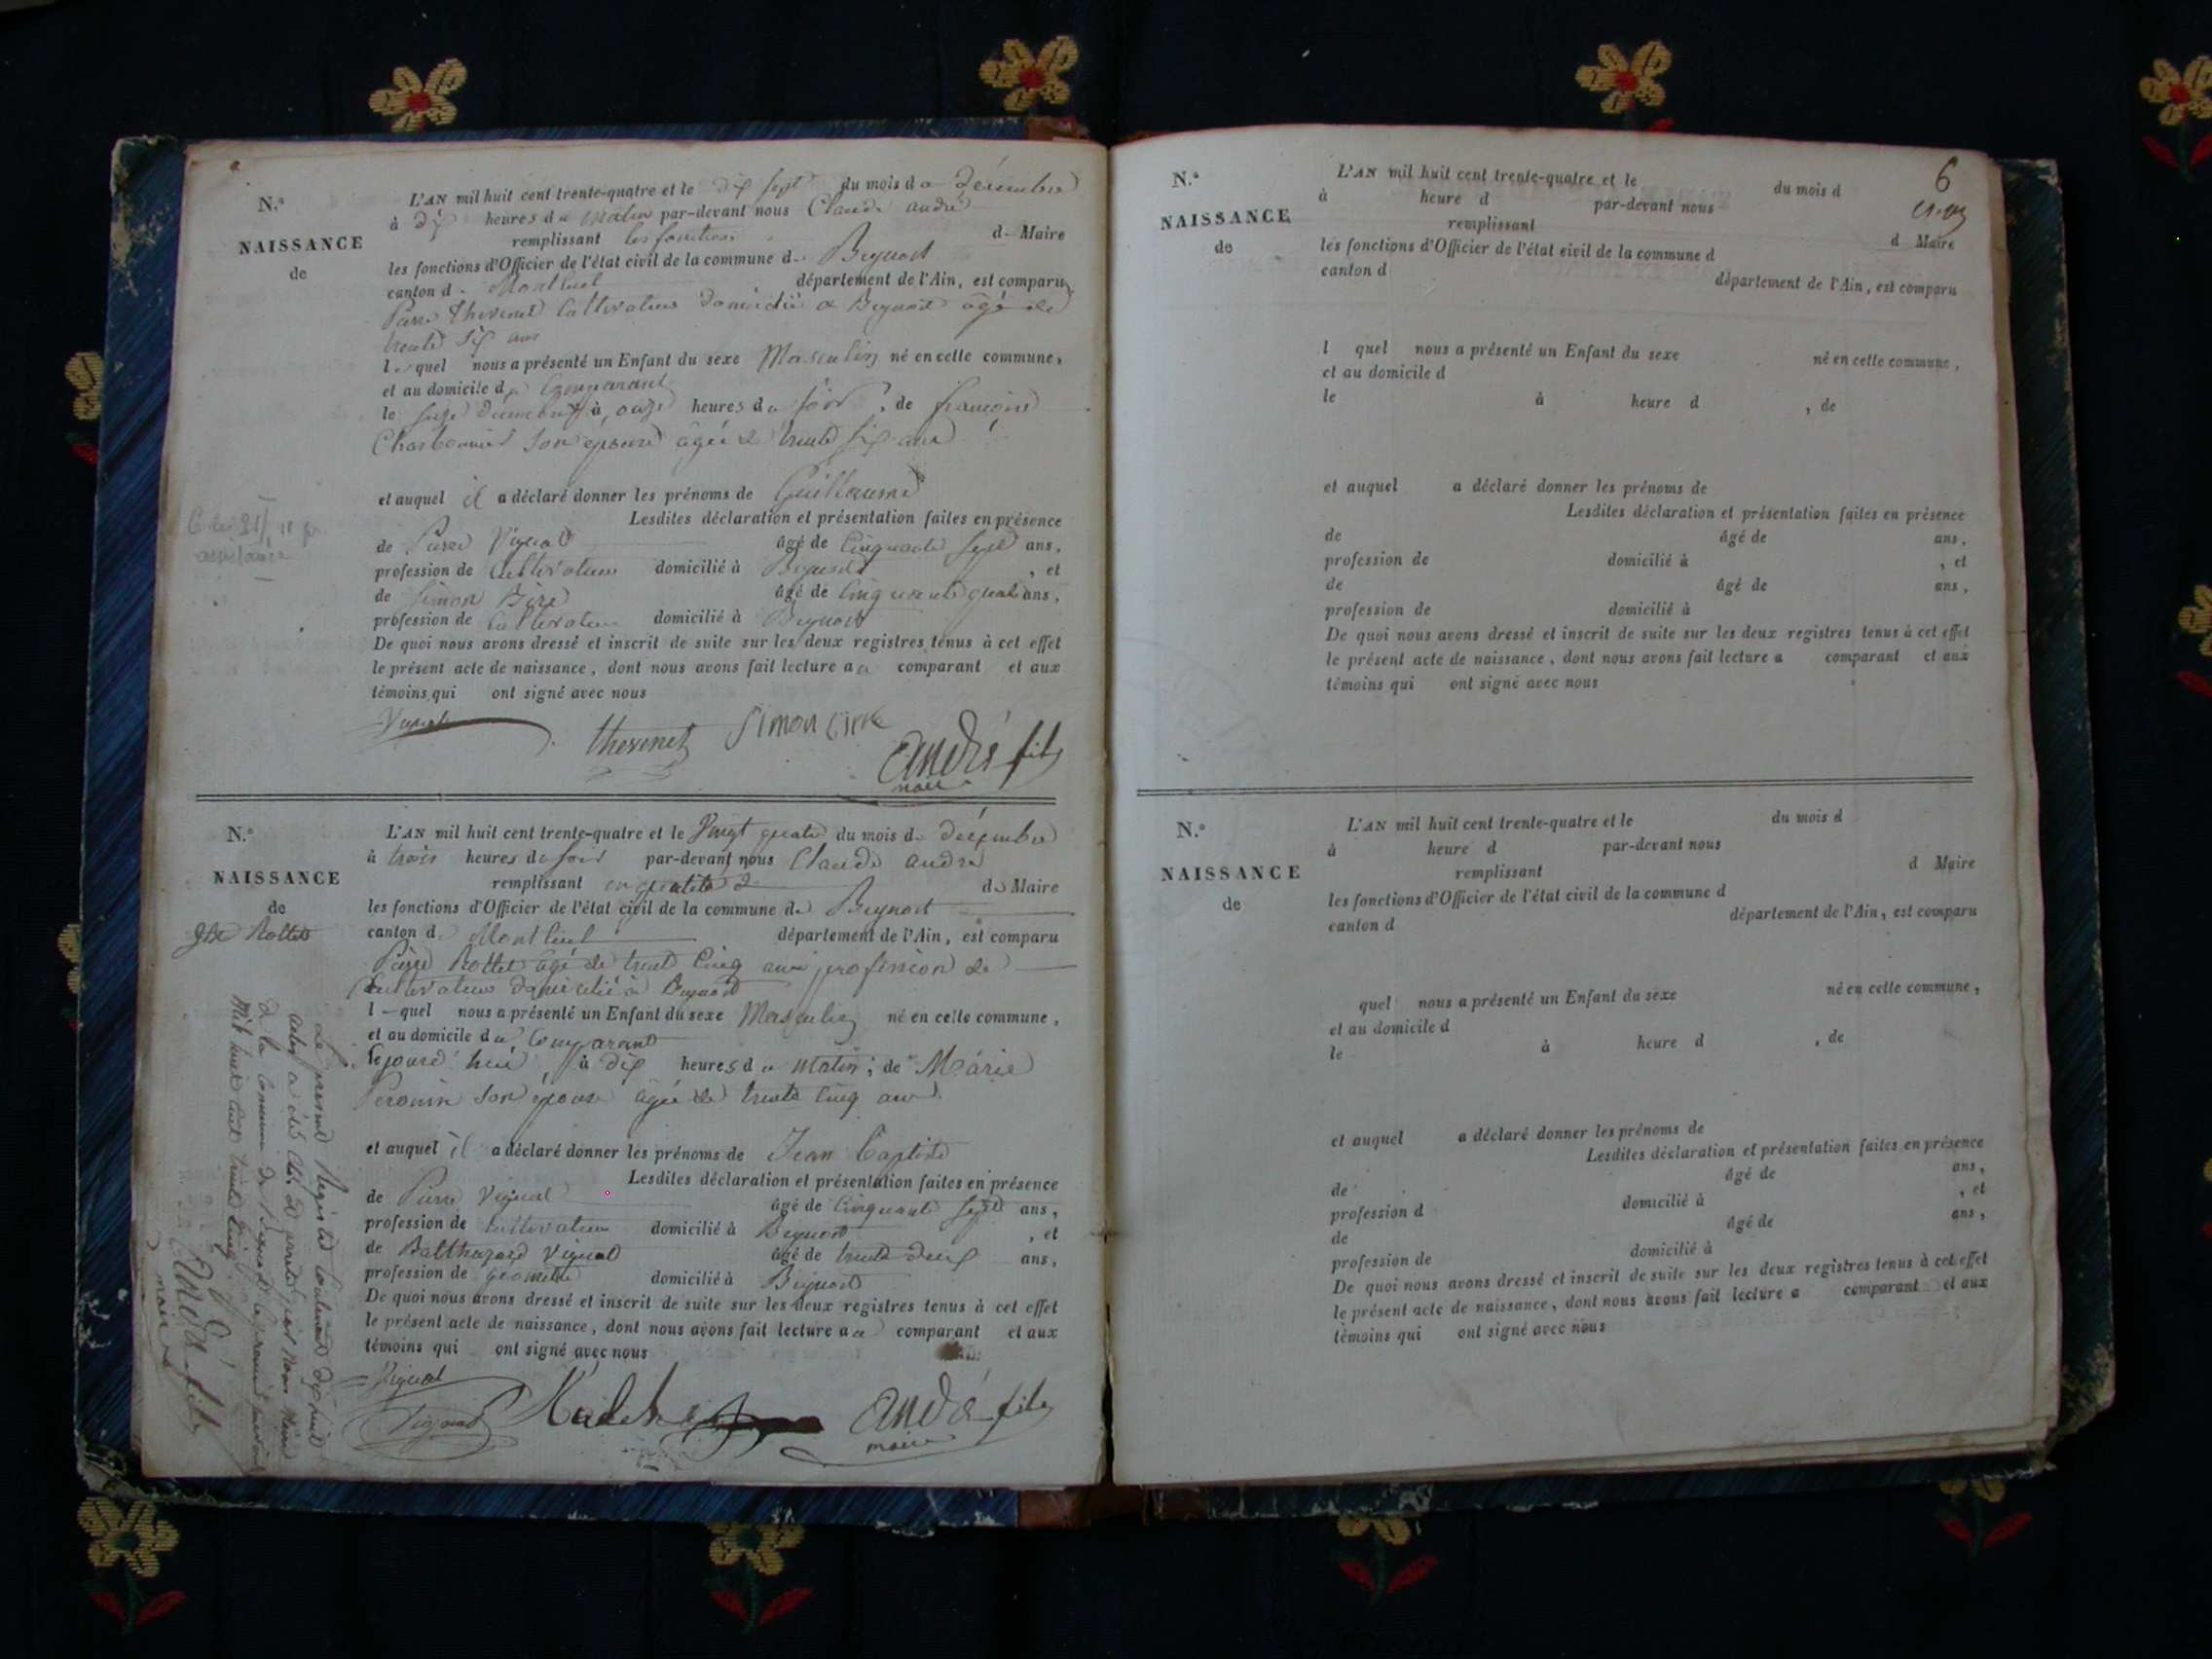 N.o
NAISSANCE
de
L'AN mil huit cent trente-quatre et le dix sept du mois de décembre
à dix heures du matin par-devant nous Claude andré
remplissant les fonctions d. Maire
les fonctions d'Officier de l'état civil de la commune d. Beynost
canton d. Montluel département de l'Ain, est comparu
Pierre thevenet Cultivateur domicilié a Beynost âgé de
trente six ans
l. quel nous a présenté un Enfant du sexe Masculin né en cette commune,
et au domicile du Comparant
le seize décembre à onze heures du soir, de françoise
Charbonnier son épouse âgée de trente six ans
et auquel il a déclaré donner les prénoms de Guillaume
Lesdites déclaration et présentation faites en présence
de Pierre Vignat âgé de Cinquante sept ans,
profession de Cultivateur domicilié à Beynost, et
de Simon âgé de Cinquante quatre ans,
profession de Cultivateur domicilié à Beynost
De quoi nous avons dressé et inscrit de suite sur les deux registres tenus à cet effet
le présent acte de naissance, dont nous avons fait lecture au comparant et aux
témoins qui ont signé avec nous
Vignat thevenet Simon andré fils
maire
N.o
NAISSANCE
de
Rottet
L'AN mil huit cent trente-quatre et le Vingt quatre du mois de décembre
à trois heures du soir par-devant nous Claude andré
remplissant en qualité de du Maire
les fonctions d'Officier de l'état civil de la commune de Beynost
canton d. Montluel département de l'Ain, est comparu
Pierre Rottet âgé de trente Cinq ans profession de
Cultivateur domicilié à Beynost
l quel nous a présenté un Enfant du sexe Masculin né en cette commune,
et au domicile du Comparant
le jourd'hui à dix heures du matin, de Marie
son épouse âgée de trente Cinq ans
et auquel il a déclaré donner les prénoms de Jean Baptiste
Lesdites déclaration et présentation faites en présence
de Pierre Vignat âgé de Cinquante sept ans,
profession de Cultivateur domicilié à Beynost, et
de Balthazard Vignat âgé de trente deux ans,
profession de géomètre domicilié à Beynost
De quoi nous avons dressé et inscrit de suite sur les deux registres tenus à cet effet
le présent acte de naissance, dont nous avons fait lecture au comparant et aux
témoins qui ont signé avec nous
Vignat
Vignat andré fils
maire
Le présent Registre Contenant dix huit
actes a été clos et arrêté par nous Maire
de la Commune de Beynost le premier janvier
Mil huit cent trente Cinq
andré fils
maire
6
N.o
NAISSANCE
de
L'AN mil huit cent trente-quatre et le du mois d
à heure d par-devant nous
remplissant d Maire
les fonctions d'Officier de l'état civil de la commune d
canton d département de l'Ain, est comparu
l quel nous a présenté un Enfant du sexe né en cette commune,
et au domicile d
le à heure d , de
et auquel a déclaré donner les prénoms de
Lesdites déclaration et présentation faites en présence
de âgé de ans,
profession de domicilié à , et
de âgé de ans,
profession de domicilié à
De quoi nous avons dressé et inscrit de suite sur les deux registres tenus à cet effet
le présent acte de naissance, dont nous avons fait lecture a comparant et aux
témoins qui ont signé avec nous
N.o
NAISSANCE
de
L'AN mil huit cent trente-quatre et le du mois d
à heure d par-devant nous
remplissant d Maire
les fonctions d'Officier de l'état civil de la commune d
canton d département de l'Ain, est comparu
quel nous a présenté un Enfant du sexe né en cette commune,
et au domicile d
le à heure d , de
et auquel a déclaré donner les prénoms de
Lesdites déclaration et présentation faites en présence
de âgé de ans,
profession d domicilié à , et
de âgé de ans,
profession de domicilié à
De quoi nous avons dressé et inscrit de suite sur les deux registres tenus à cet effet
le présent acte de naissance, dont nous avons fait lecture a comparant et aux
témoins qui ont signé avec nous